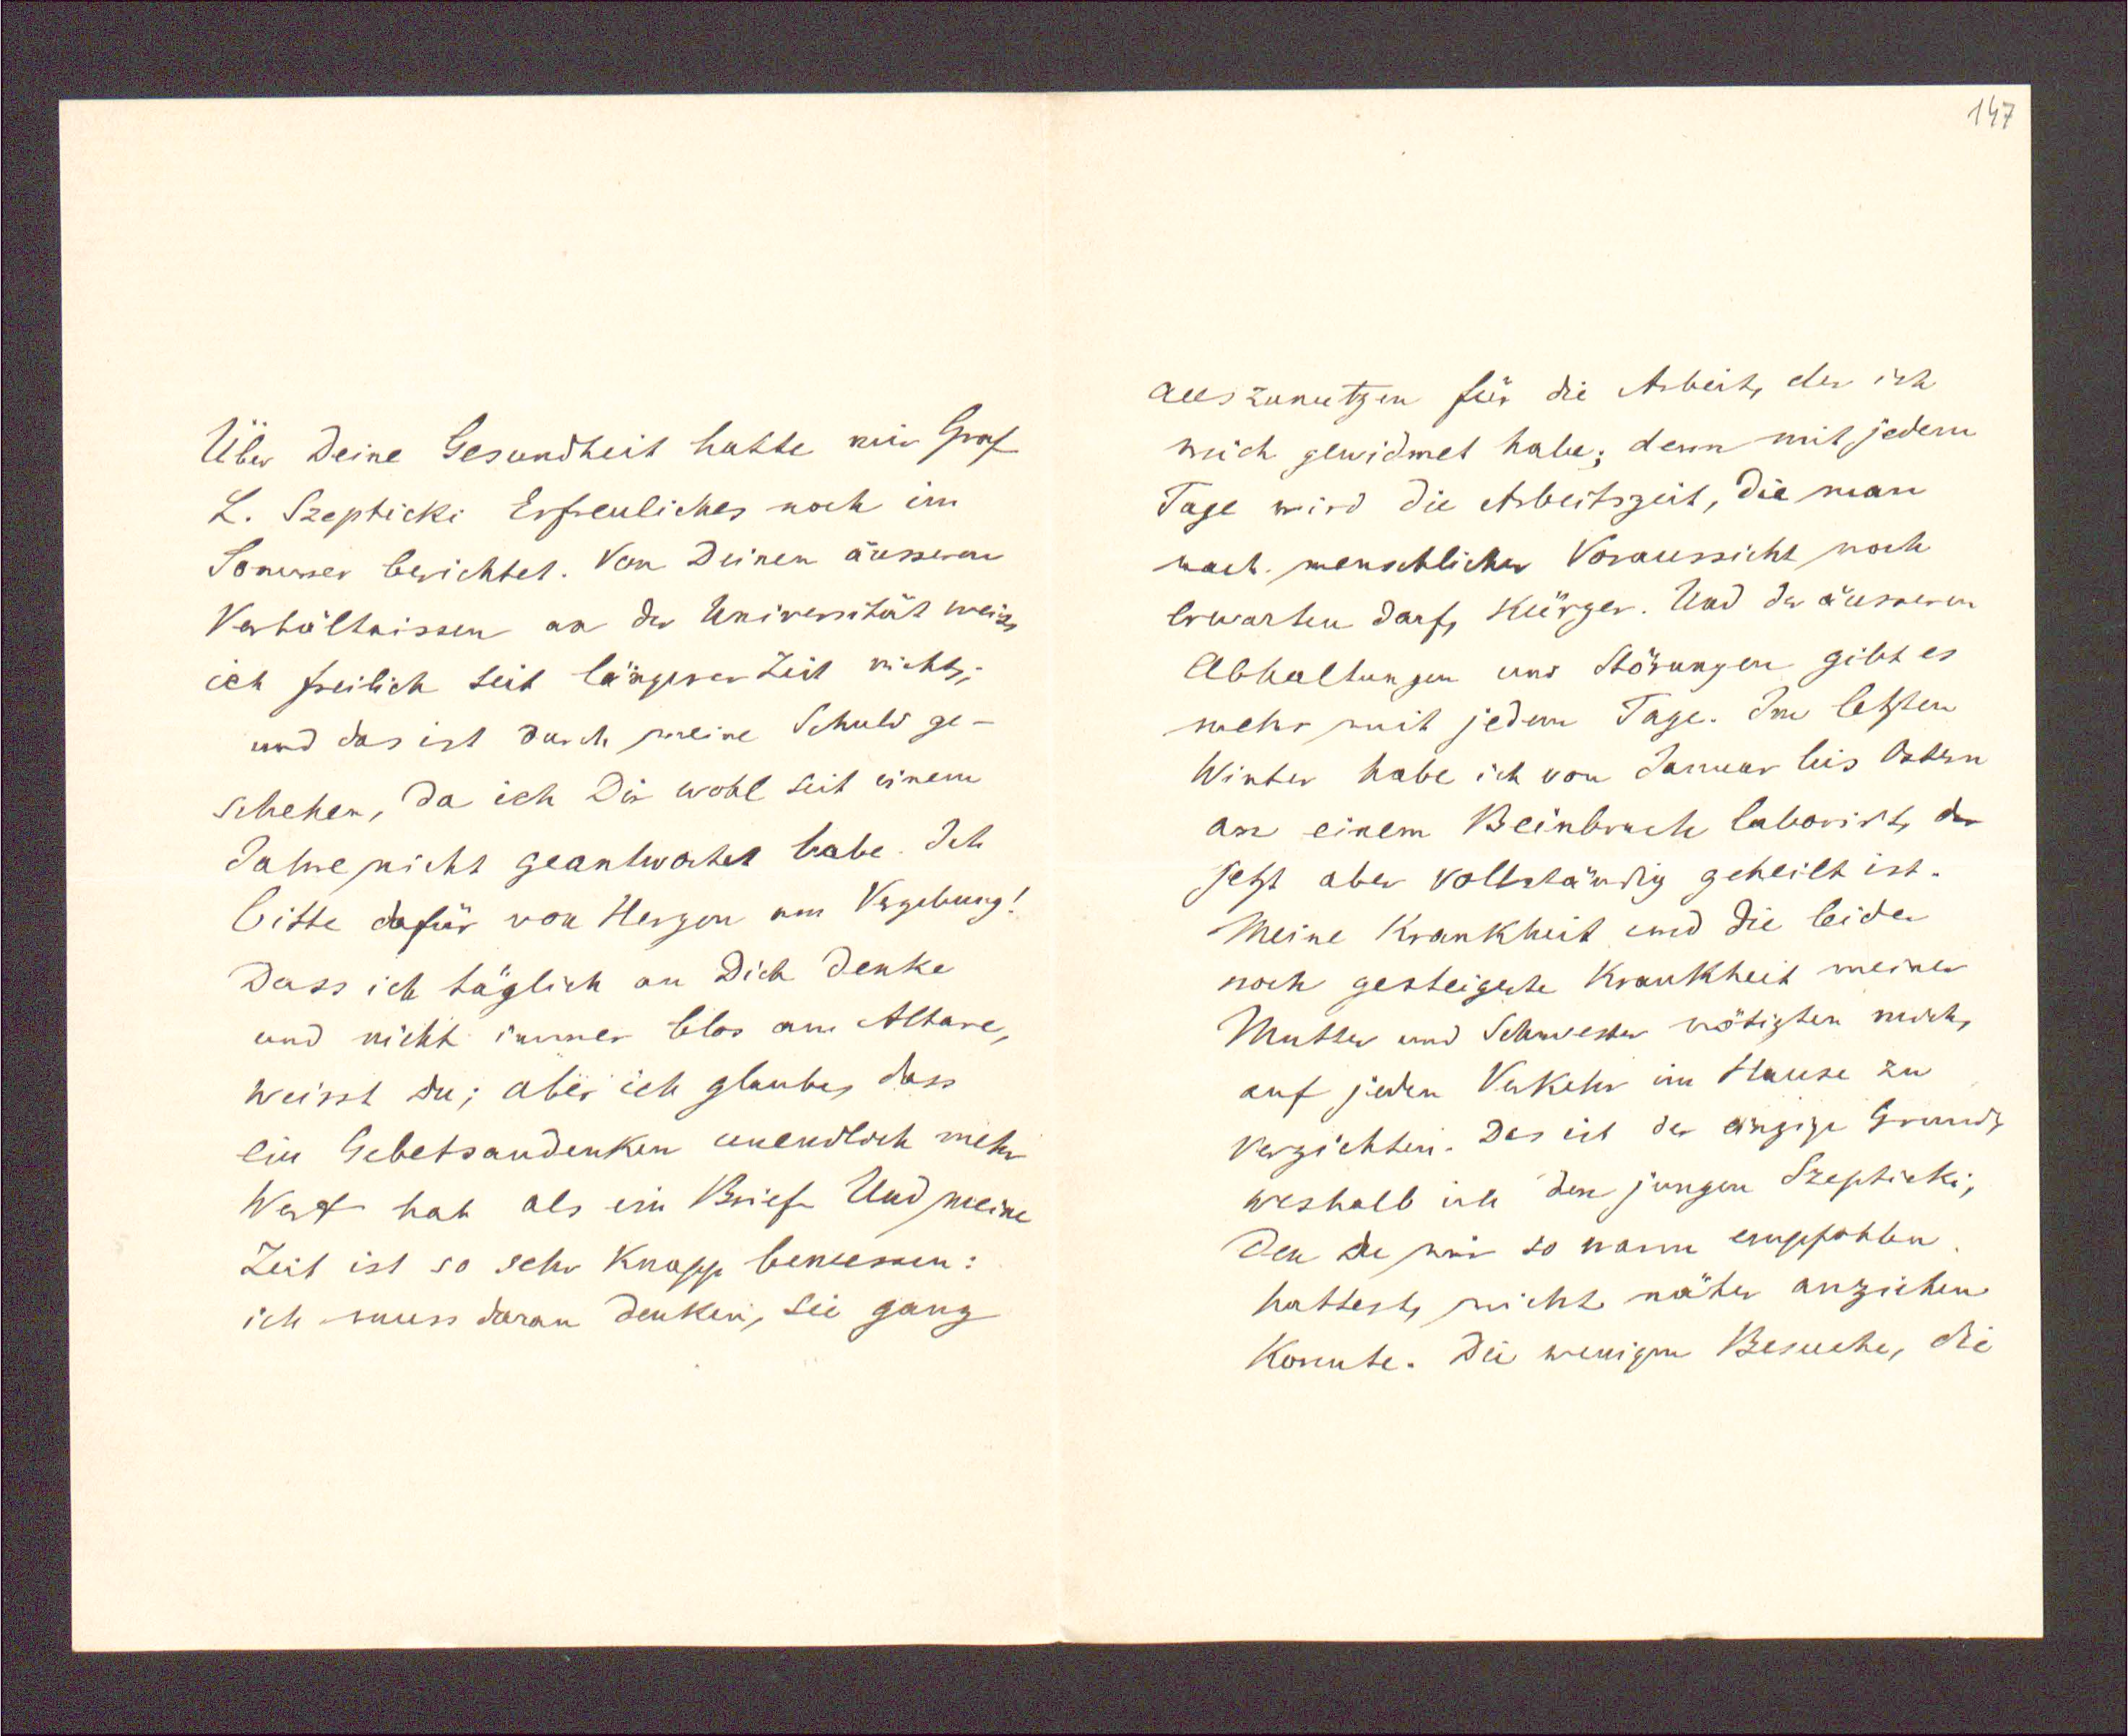 Über Deine Gesundheit hatte mir Graf
L. Szepticki Erfreuliches noch im
Sommer berichtet. Von Deinen äusseren
Verhältnissen an der Universität weiss
ich freilich seit längerer Zeit nichts;
und das ist durch meine Schuld ge-
schehen, da ich Dir wohl seit einem
Jahre nicht geantwortet habe. Ich
bitte dafür von Herzen um Vergebung!
Dass ich täglich an Dich denke
und nicht immer blos am Altare,
weisst du; aber ich glaube, dass
ein Gebetsandenken unendlich mehr
Wert hat als ein Brief. Und meine
Zeit ist so sehr knapp bemessen:
ich muss daran denken, sie ganz
147
auszunutzen für die Arbeit, der ich
mich gewidmet habe; denn mit jedem
Tage wird die Arbeitszeit, die man
nach menschlicher Voraussicht noch
erwarten darf, kürzer. Und der äusseren
Abhaltungen und Störungen gibt es
mehr mit jedem Tage. Im letzten
Winter habe ich von Januar bis Ostern
an einem Beinbruch laborirt, der
jetzt aber vollständig geheilt ist.
Meine Krankheit und die leider
noch gesteigerte Krankheit meiner
Mutter und Schwester nötigten mich,
auf jeden Verkehr im Hause zu
verzichten. Das ist der einzige Grund,
weshalb ich den jungen Szepticki,
den du mir so warm empfohlen
hattest, nicht näher anziehen
konnte. Die wenigen Besuche, die